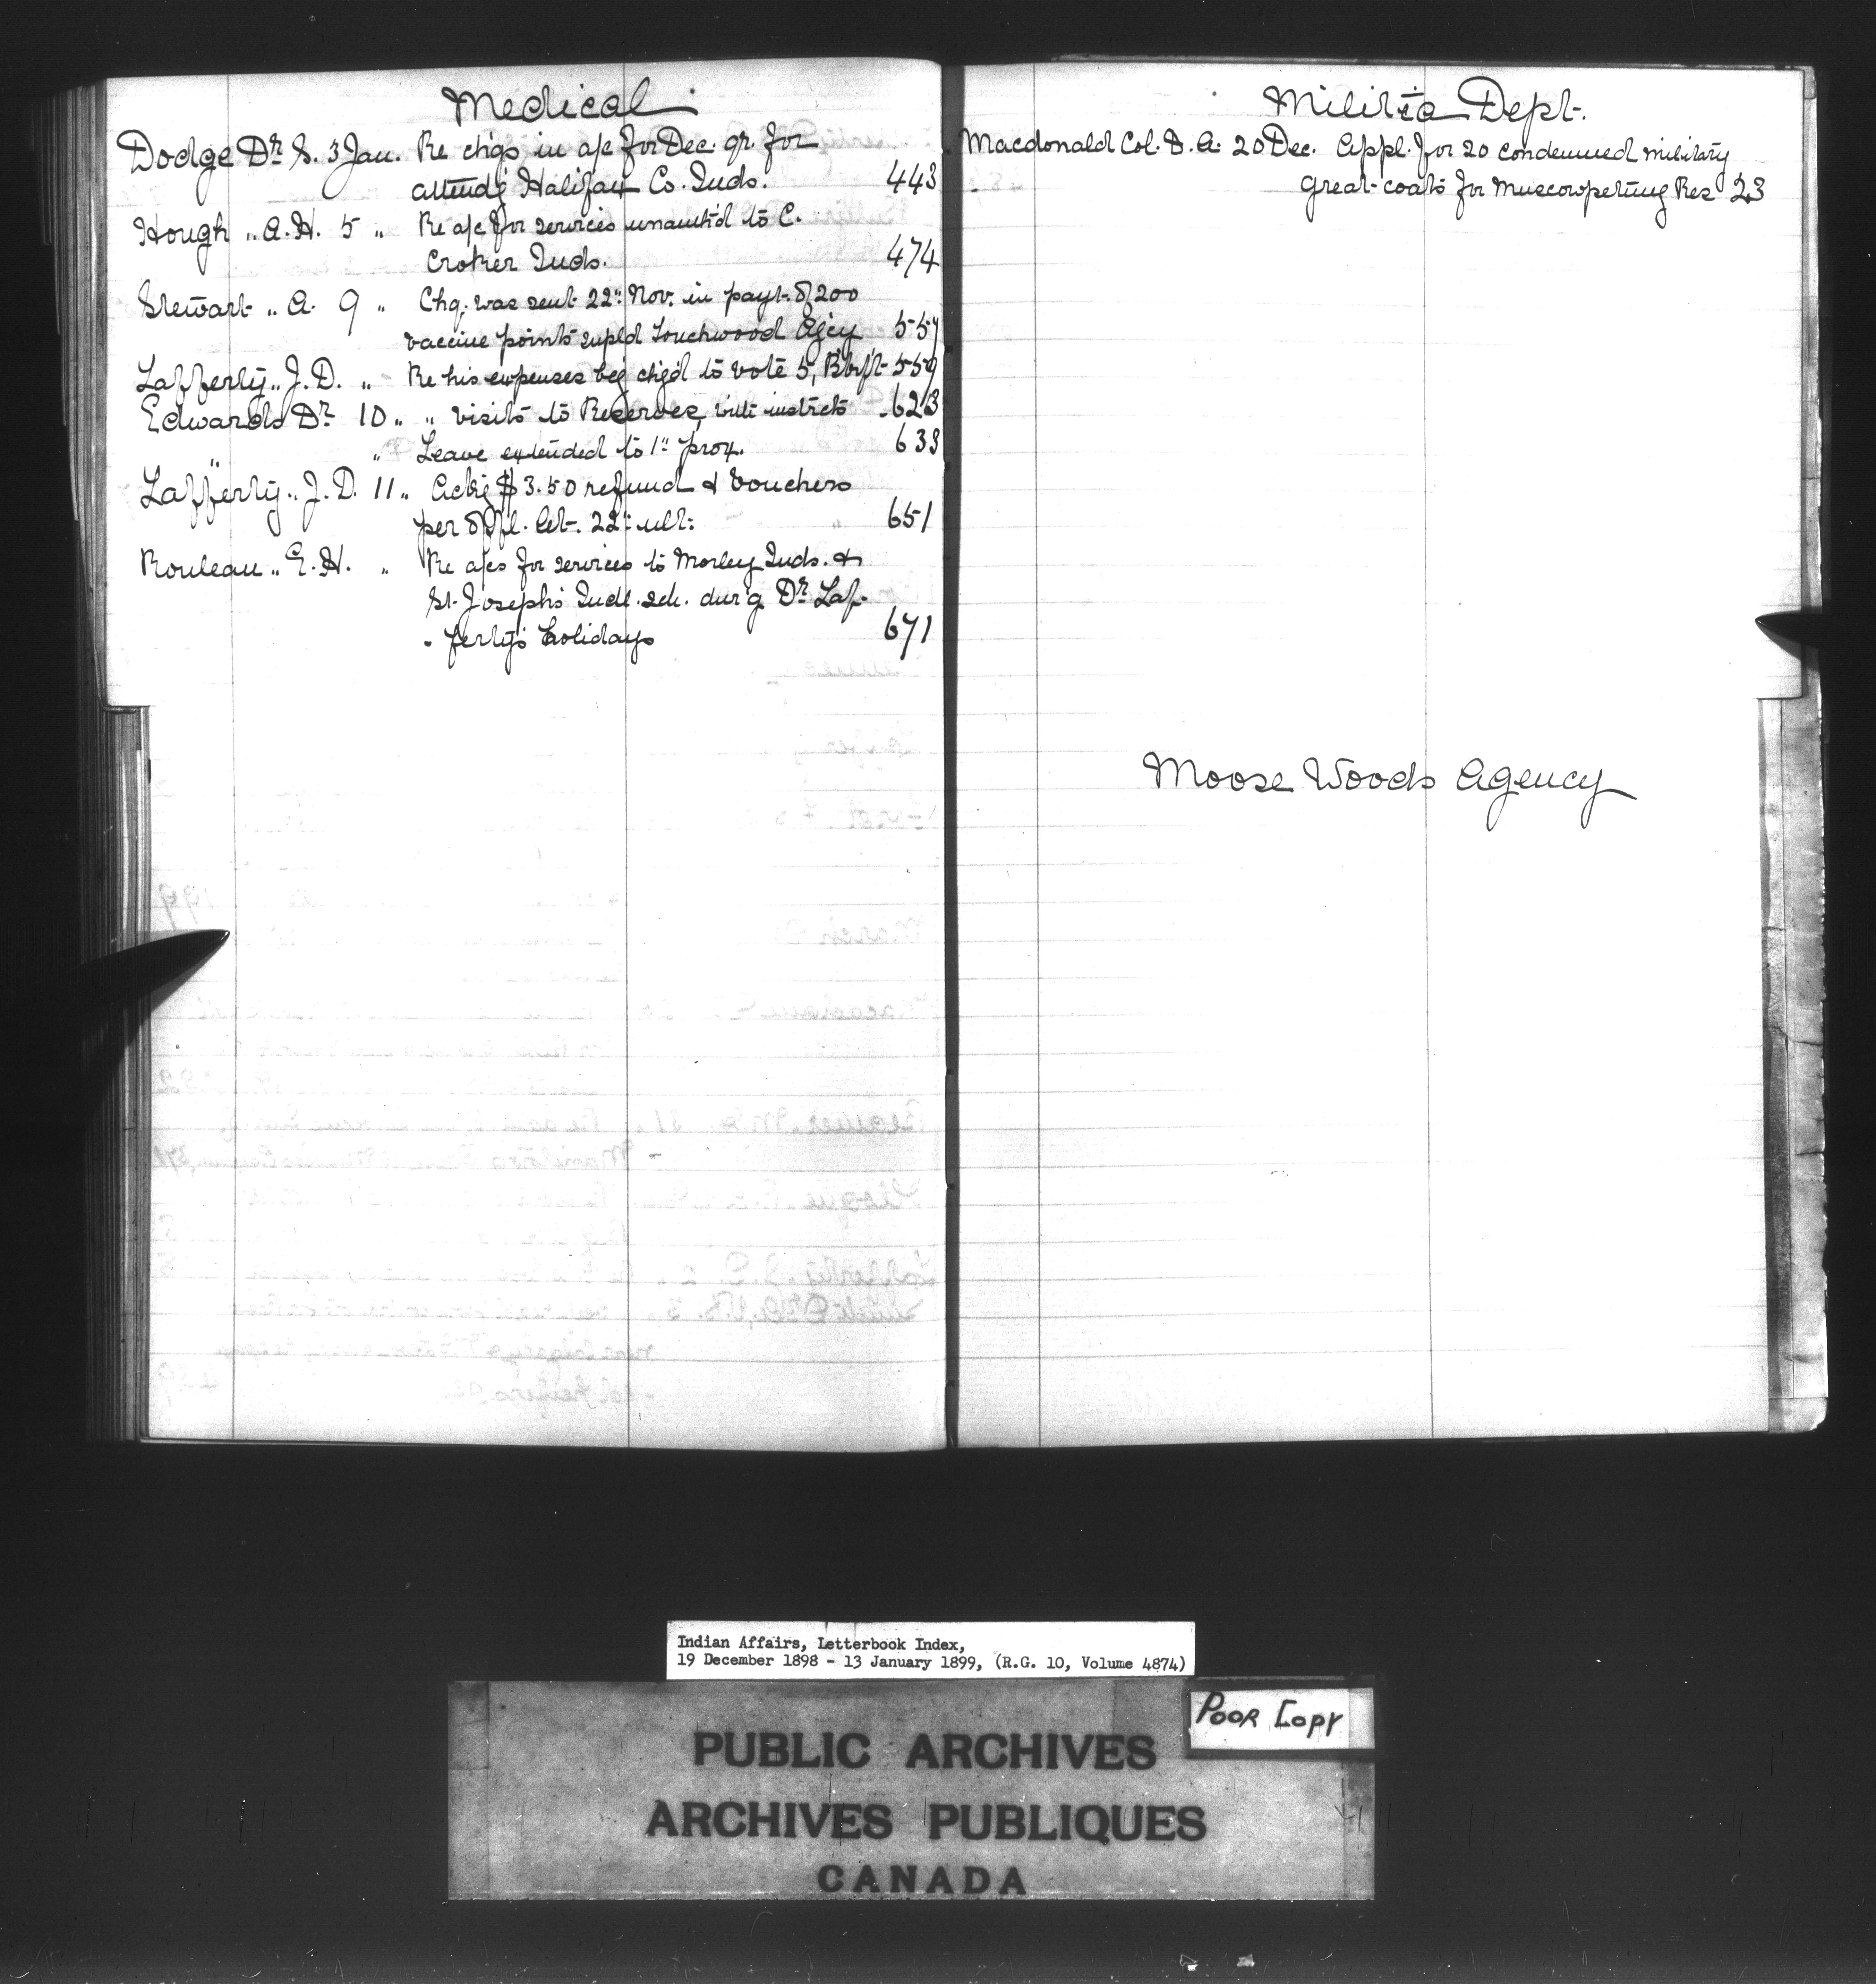 Medical
Dodge Dr. S. 3 Jan. Re chgs in a/c for Dec. qr. for
attendg Halifax Co. Inds. 443
Hough " A.H. 5 " Re a/c for services unauth'd to C.
Croker Inds. 474
Stewart " A. 9 " Chq. was sent 22" Nov. in payt. of 200
vaccine points supld Touchwood Agcy 557
Lafferty " J.D. " Re his expenses beg chg'd to vote 5, 559
Edwards Dr. 10 " " visits to Reserves, with instrcts 623
" " Leave extended to 1" prox. 633
Lafferty " J.D. 11 " Ackg $3.50 refund & vouchers
per offl. let. 22" ult. 651
Rouleau " E.H. " Re a/cs for services to Morley Inds. &
St. Joseph's Indl. sch. dur'g Dr. Laf-
-ferty's holidays 671
Militia Dept.
Macdonald Col. D.A. 20 Dec. Appl. for 20 condemned military
great-coats for Muscowpetung Res 23
Moose Woods Agency
Indian Affairs, Letterbook Index,
19 December 1898 - 13 January 1899, (R.G. 10, Volume 4874)
Poor Copy
PUBLIC ARCHIVES
ARCHIVES PUBLIQUES
CANADA